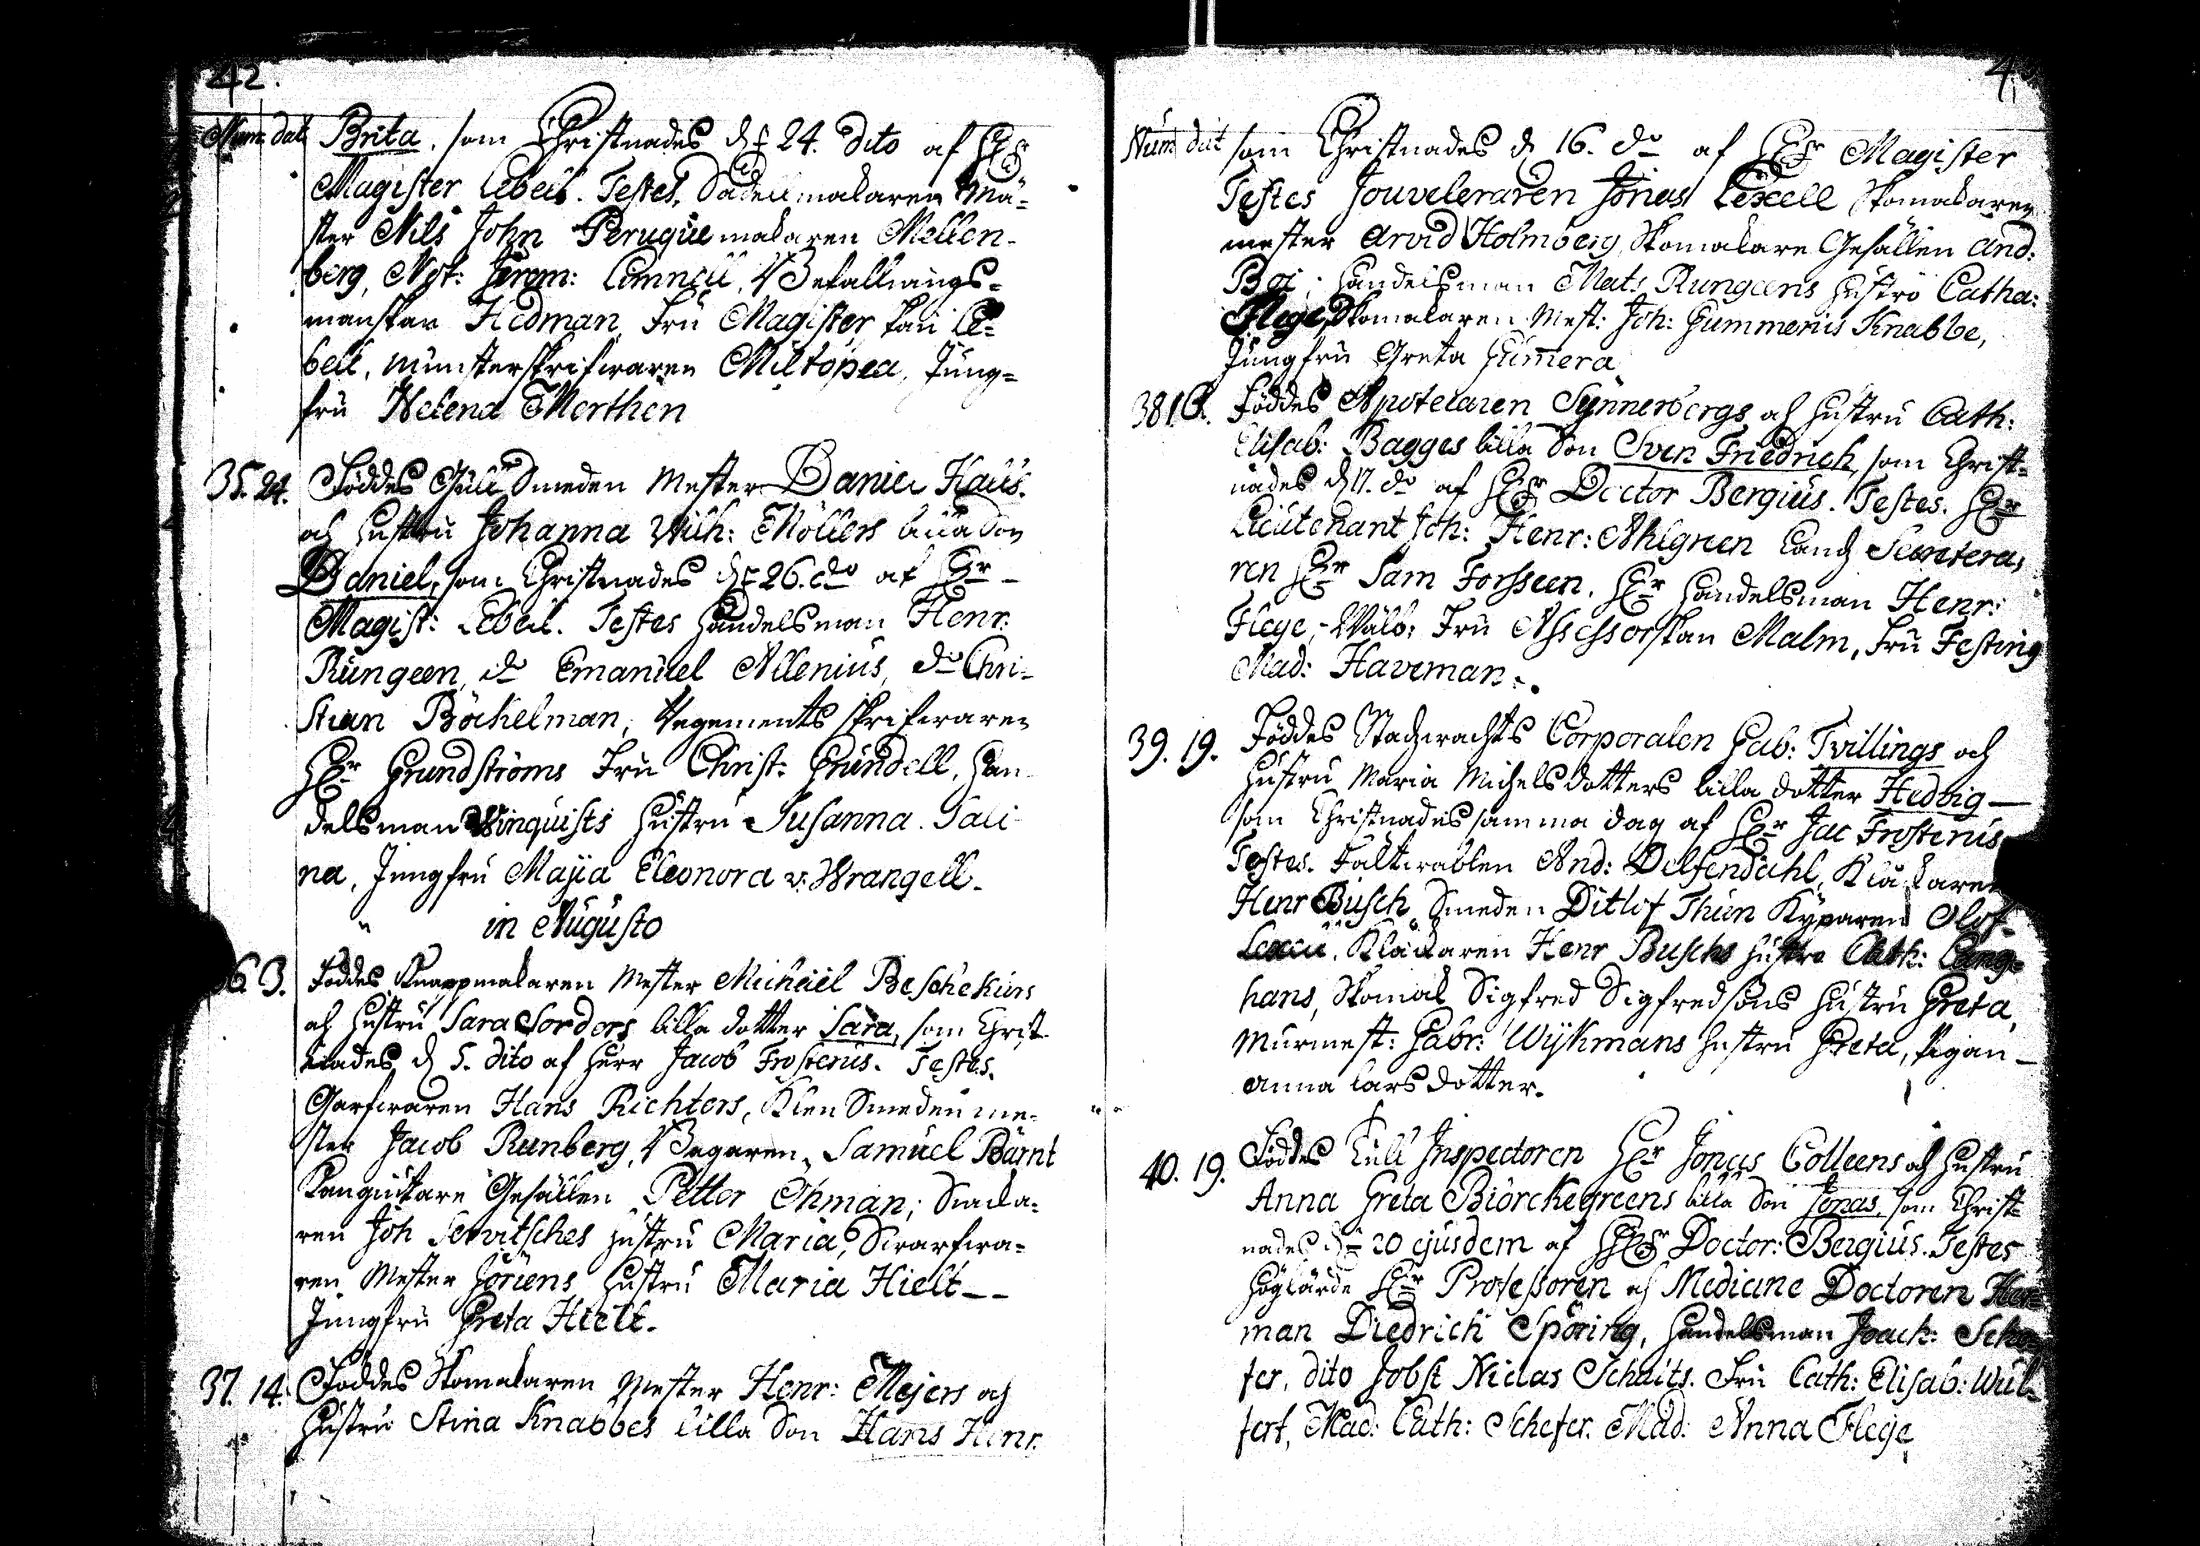 42.
Num dat Brita, som Christnades d 24. dito af Hr
Magister Lebell. Testes, Sadelmakaren Mä-
ster Nils John Peruquemakaren Mellen-
berg, Not: Jerem: Befallnings-
manskan Hedman, Fru Magisterskan Le-
bell, Münsterskrifwaren Miltopæa, Jung-
fru Helena Merthen
35. 24. Föddes Gull Smeden Mester Daniel Haus.
och Hustru Johanna Wilh: Möllers lilla Son
Daniel, som Christnades d 26. do af Hr
Magist: Lebell. Testes Handelsman Henr:
Rungeen, do Emanuel Allenius, do Chri-
stian Böckelman, Regements skrifwaren
Hr Grundströms Fru Christ: Gründell, Han-
delsman Winquists Hustru Susanna Pali
na, Jungfru Maja Eleonora v. Wrangell.
in Augusto
36. 3. Föddes Knappmakaren Mester Michael Beschekurs
och Hustru Sara Sordors lilla dotter Sara, som Christ-
nades d 5. dito af Herr Jacob Frosterus. Testes.
Garfwaren Hans Richters, Klen Smeden me-
ster Jacob Runberg, Bagaren Samuel Bärnt
Kangiutare Gesällen Petter Öhman; Snicka-
ren Joh Servitsches Hustru Maria, Swarfwa-
ren Mester Jöriens Hustru Maria Hielt
Jungfru Greta Hielt.
37. 14. Föddes Skomakaren Mester Henr: Mejers och
Hustru Stina Knabbes lilla Son Hans Henr.
4
Num dat som Christnades d 16. do af Hr Magister
Testes Jouveleraren Jonas Lexell Skomakaren
mester Arvid Holmberg, Skomakare Gesällen And:
Boi, Handelsman Mats Rungeens Hustro Catha:
Flege, Skomakaren Mest: Joh: Gummerus Knabbe,
Jungfru Greta Gumera
38. 16. Föddes Apotecaren Synnerbergs och Hustru Cath:
Elisab: Bagges lilla Son Sven Friedrich, som Christ-
nades d 17. do af Hr Doctor Bergius. Testes. Hr
Lieutenant Joh: Henr: Ahlgreen Land Secretera,
ren Hr Sam Forsseen. Hr Handelsman Henr:
Flege, Wälb: Fru Assessorskan Malm, Fru Festing
Mad: Haveman.
39. 19. Föddes Stadzwachts Corporalen Gab: Tvillings och
Hustru Maria Michelsdotters lilla dotter Hedvig
som Christnades samma dag af Hr Jac Frosterus
Testes. Fältwäblen And: Delfendahl, Klädaren
Henr Busch, Smeden Ditlof Thun Kyparen Olof
Lexell, Klädaren Henr Buschs Hustro Cath: Lang-
hans, Skomak Sigfred Sigfredsons Hustru Greta,
Murmest: Gabr: Wijkmans Hustru Greta, Pigan
Anna Larsdotter.
40. 19. Föddes Tull Inspectoren Hr Jonas Colleens och Hustru
Anna Greta Biörckegreens lilla Son Jonas, som Christ-
nades d 20 ejusdem af Hr Doctor: Bergius. Testes
Höglärde Hr Professoren och Medicine Doctoren Her-
man Diedrich Spöring, Handelsman Joach: Sche
fer, dito Jobst Niclas Schults. Fru Cath: Elisab: Wul-
fert, Mad: Cath: Schefer. Mad: Anna Flege